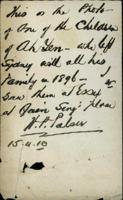 This is the Photo-
of One of the Children
of Ah Yen - who left
Sydney with all his
Family in 1896 - I
Saw them at
at Sing's place
W. A. Palser
15-4-10